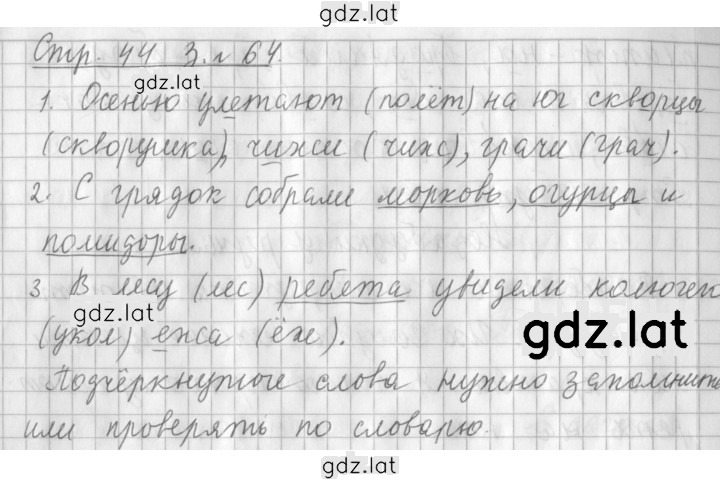 gdz.lat
Стр. 44 З. № 64.
gdz.lat
1. Осенью улетают (полёт) на юг скворцы
(скворушка), чижи (чиж), грачи (грач).
2. С грядок собрали морковь, огурцы и
помидоры.
3. В лесу (лес) ребята увидели колючего
gdz.lat
(укол) ежа (ёж).
gdz.lat
Подчёркнутые слова нужно запомнить
или проверять по словарю.
gdz.lat